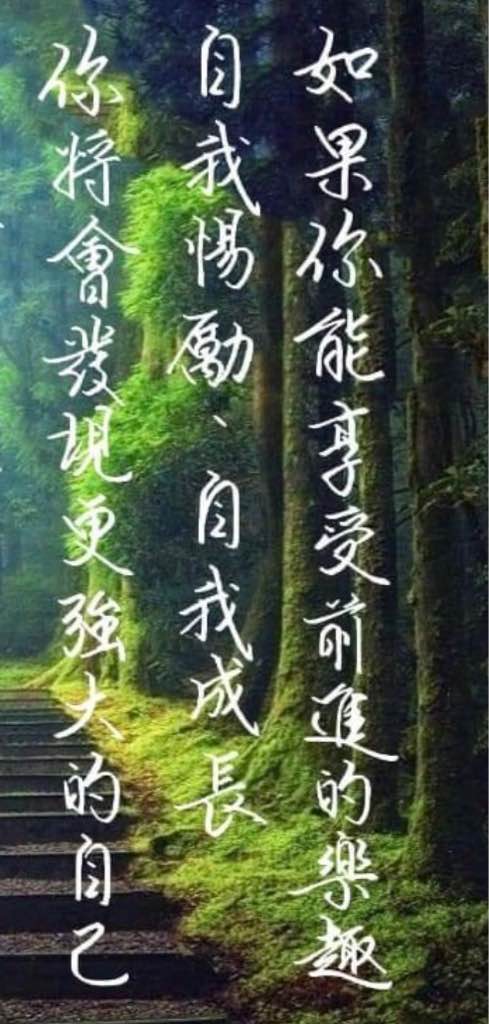 如果你能享受前進的樂趣
自我惕勵、自我成長
你將會發現更強大的自己